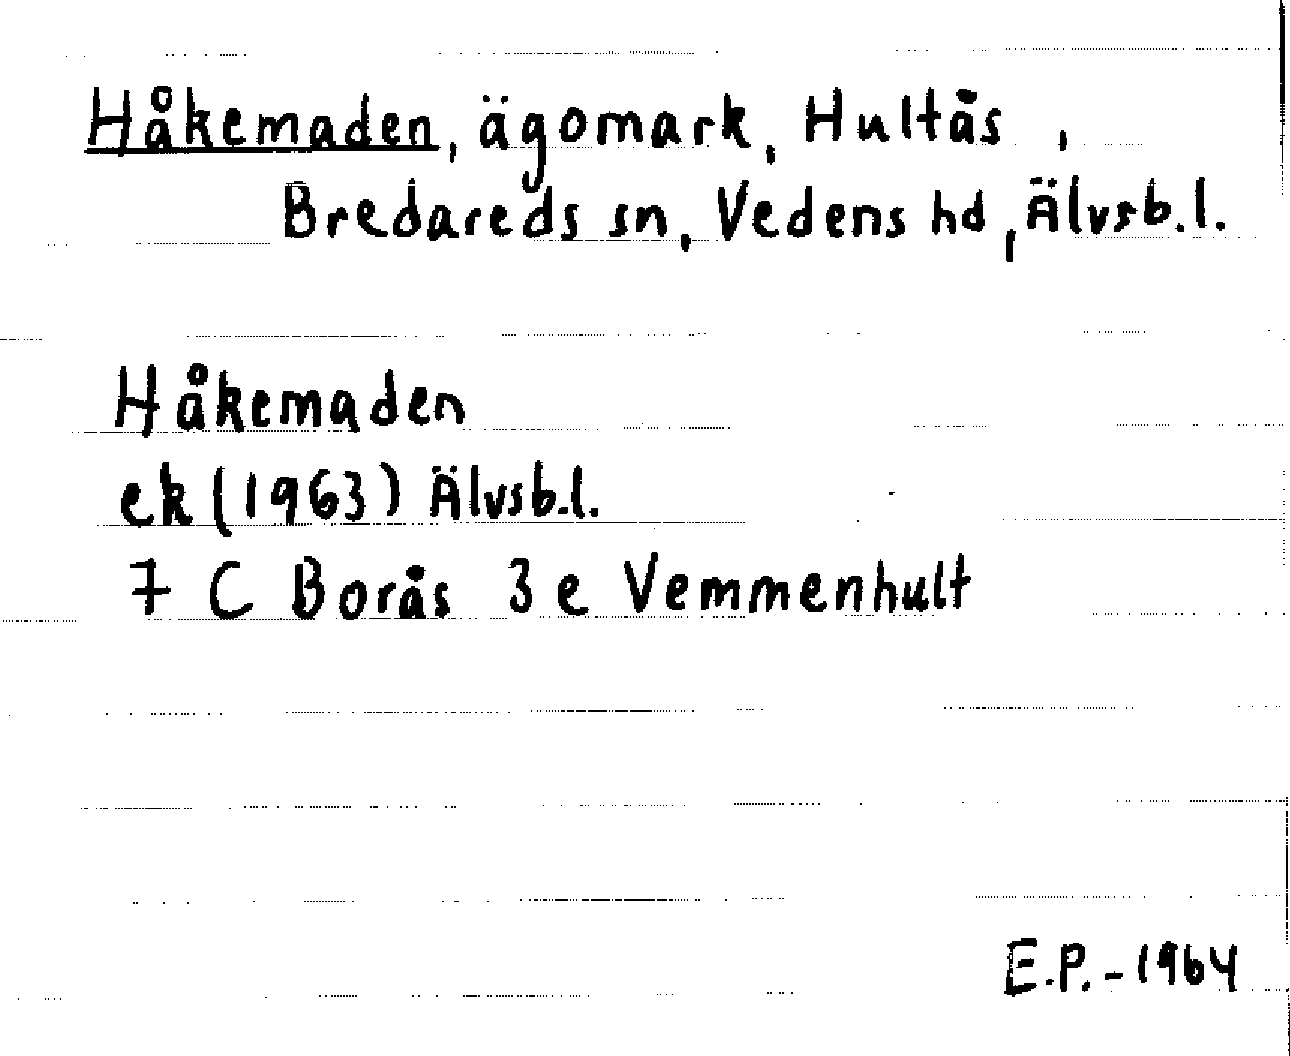 Håkemaden, ägomark, Hultås ,
Bredareds sn, Vedens hd, Älvsb.l.
Håkemaden
ek (1963) Älvsb.l.
7 C Borås 3 e Vemmenhult
E.P. - 1964